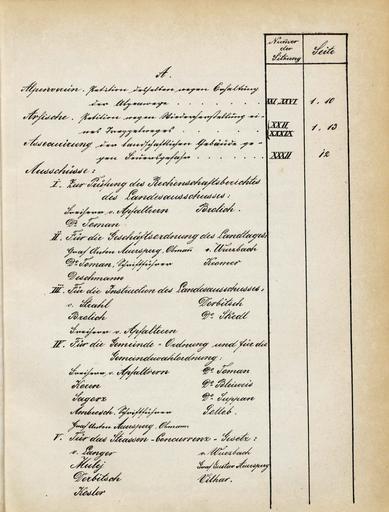 Numer der Sitzung
Seite
A.
Alpenverein. Petition desselben wegen Erhaltung
der Alpenwege XXI. XXVI. 1. 10
Petition wegen Wiederherstellung ei-
nes Treppelweges XXII. XXXIX 1. 13
Assecurierung der landschaftlichen Gebäude ge-
gen Feuersgefahr XXXII 12
Ausschüsse:
I. Zur Prüfung des Rechenschaftsberichtes
des Landesausschusses.
Freiherr v. Apfaltern Brolich.
Dr. Toman
II. Für die Geschäftsordnung des Landtages
Graf Anton Auersperg, Obmann v. Wurzbach
Dr. Toman, Schriftführer Kromer
Deschmann
III. Für die Instruction des Landesausschusses.
v. Strahl Derbitsch
Brolich Dr. Skedl
Freiherr v. Apfaltern
IV. Für die Gemeinde-Ordnung und für die
Gemeindewahlordnung:
Freiherr v. Apfaltern Dr. Toman
Dr. Bleiweis
Dr. Suppan
Ambrosch, Schriftführer
Graf Anton Auersperg, Obmann
V. Für das Strassen-Concurrenz-Gesetz:
v. Langer v. Wurzbach
Mulej Graf Gustav Auersperg
Derbitsch Vilhar.
Kosler